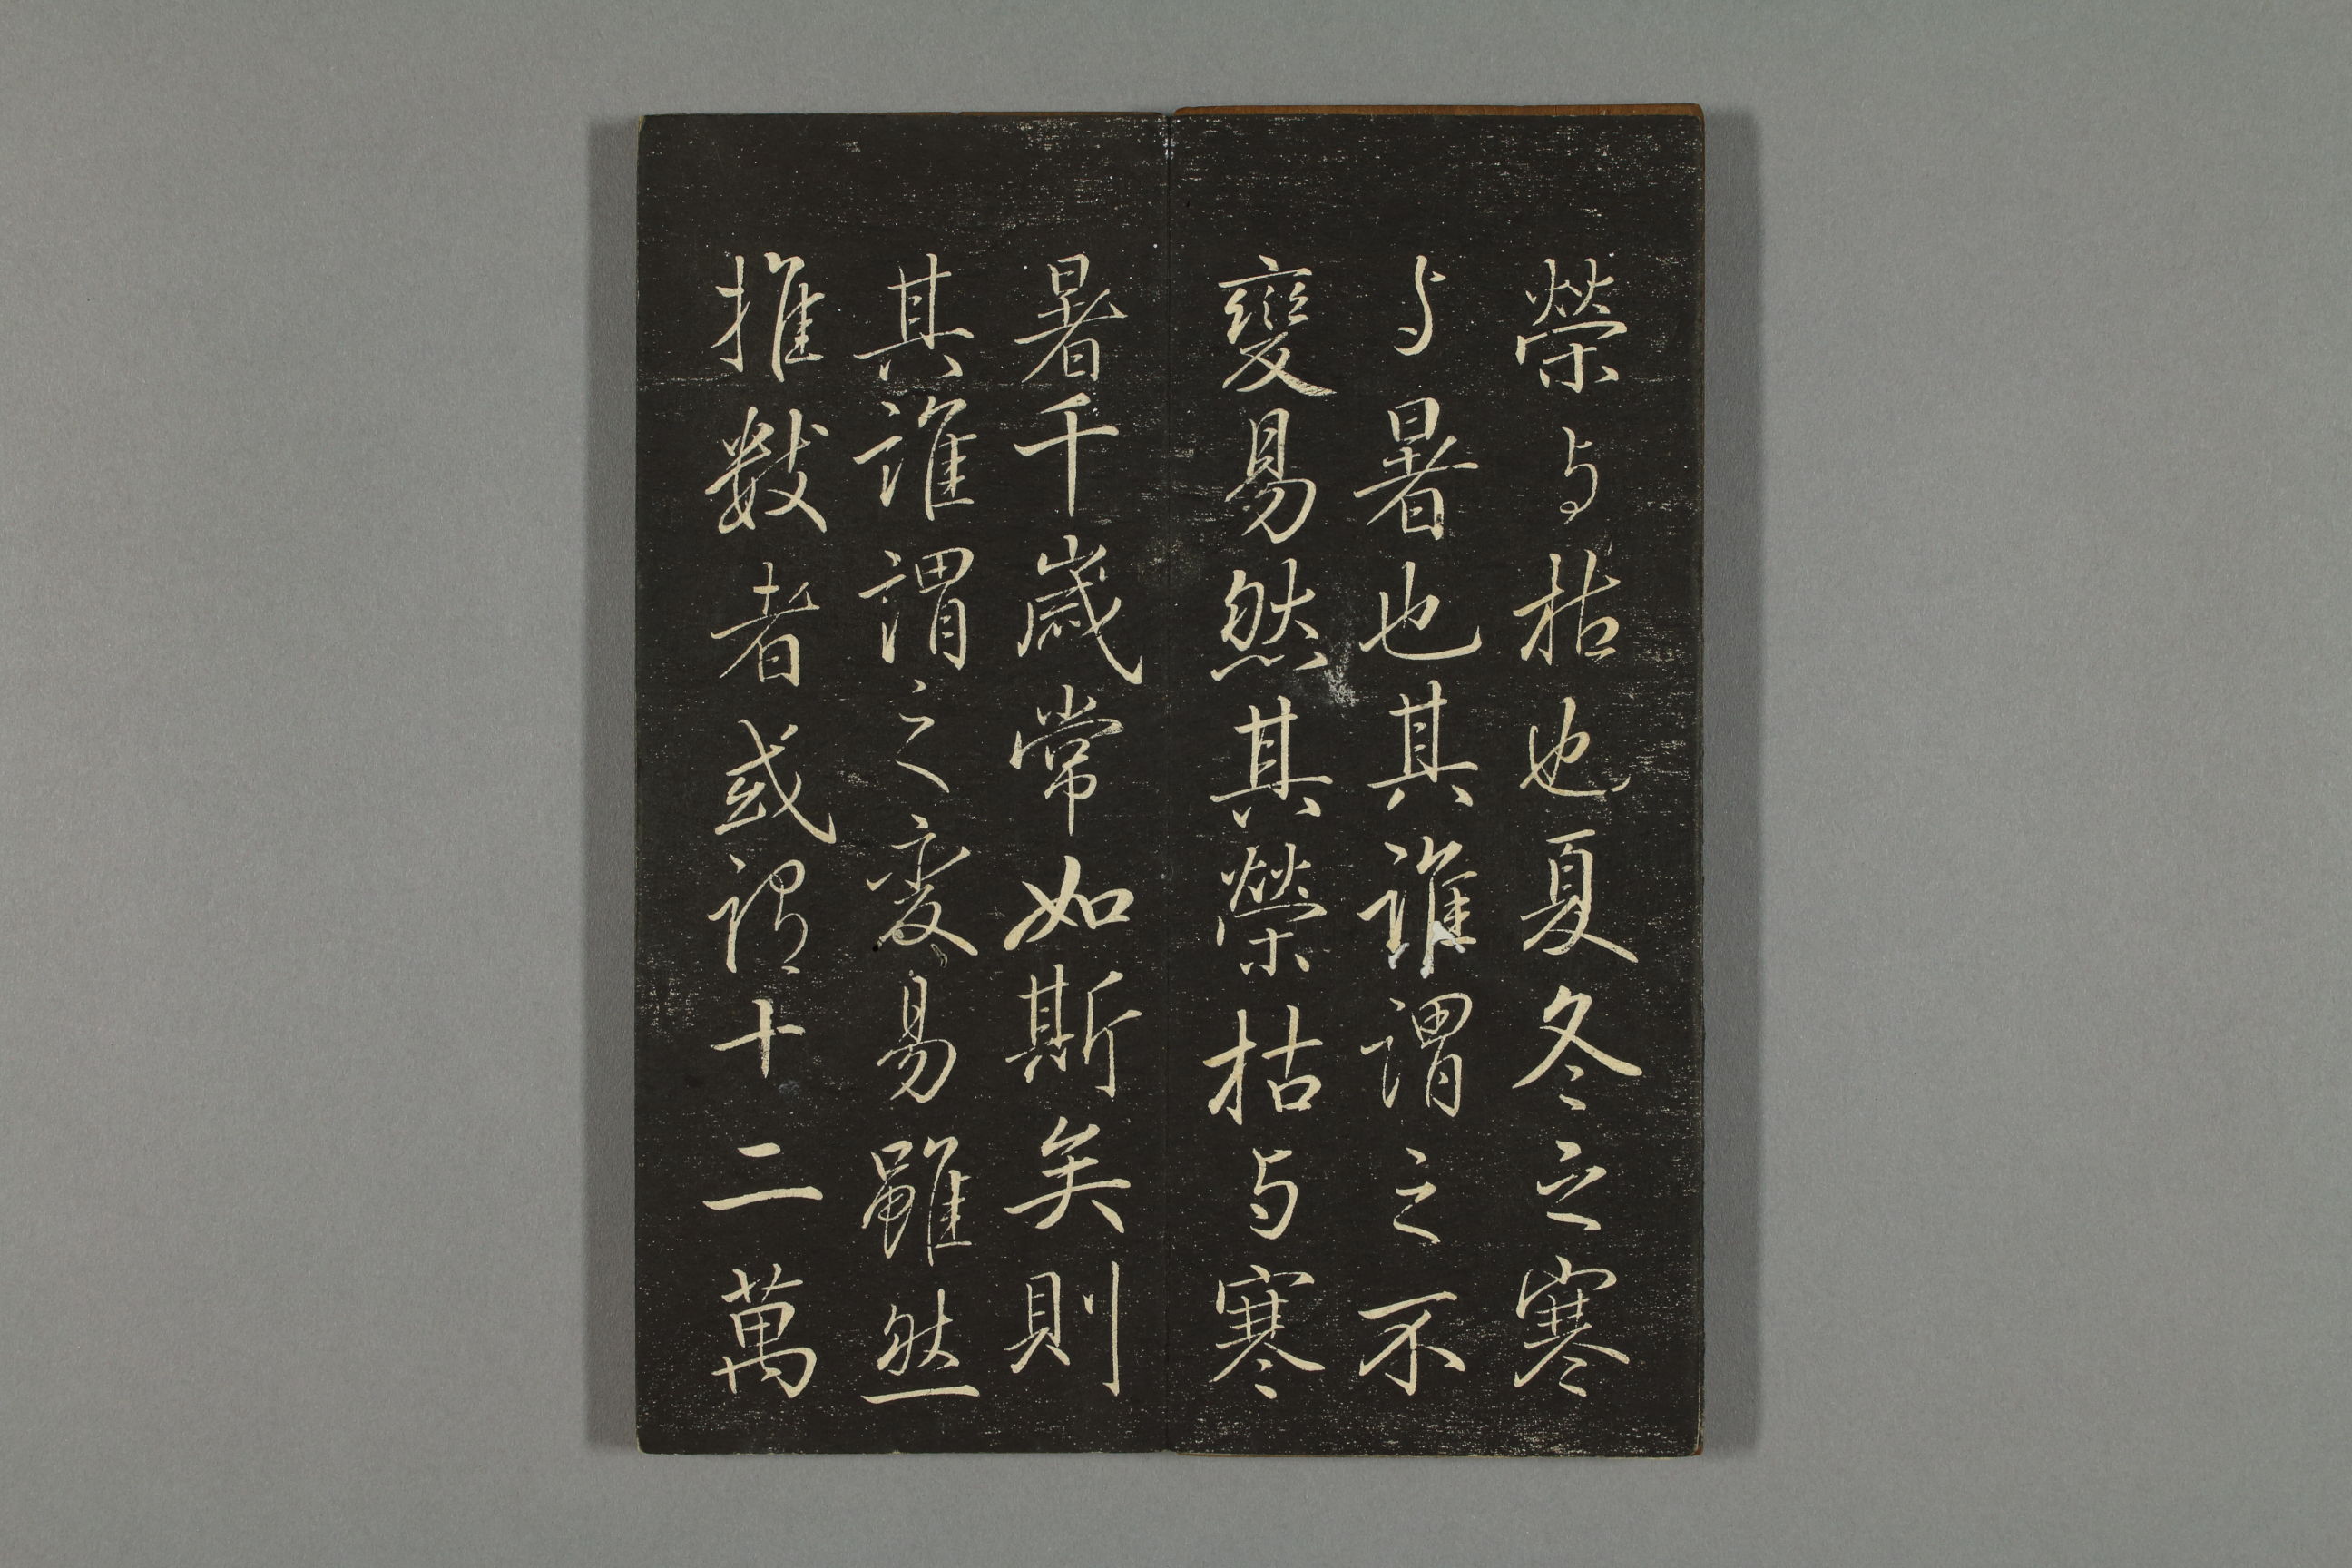 榮与枯也夏冬之寒
与暑也其誰謂之不
變易然其榮枯与寒
暑千歲常如斯矣則
其誰謂之变易雖然
推数者或謂十二萬